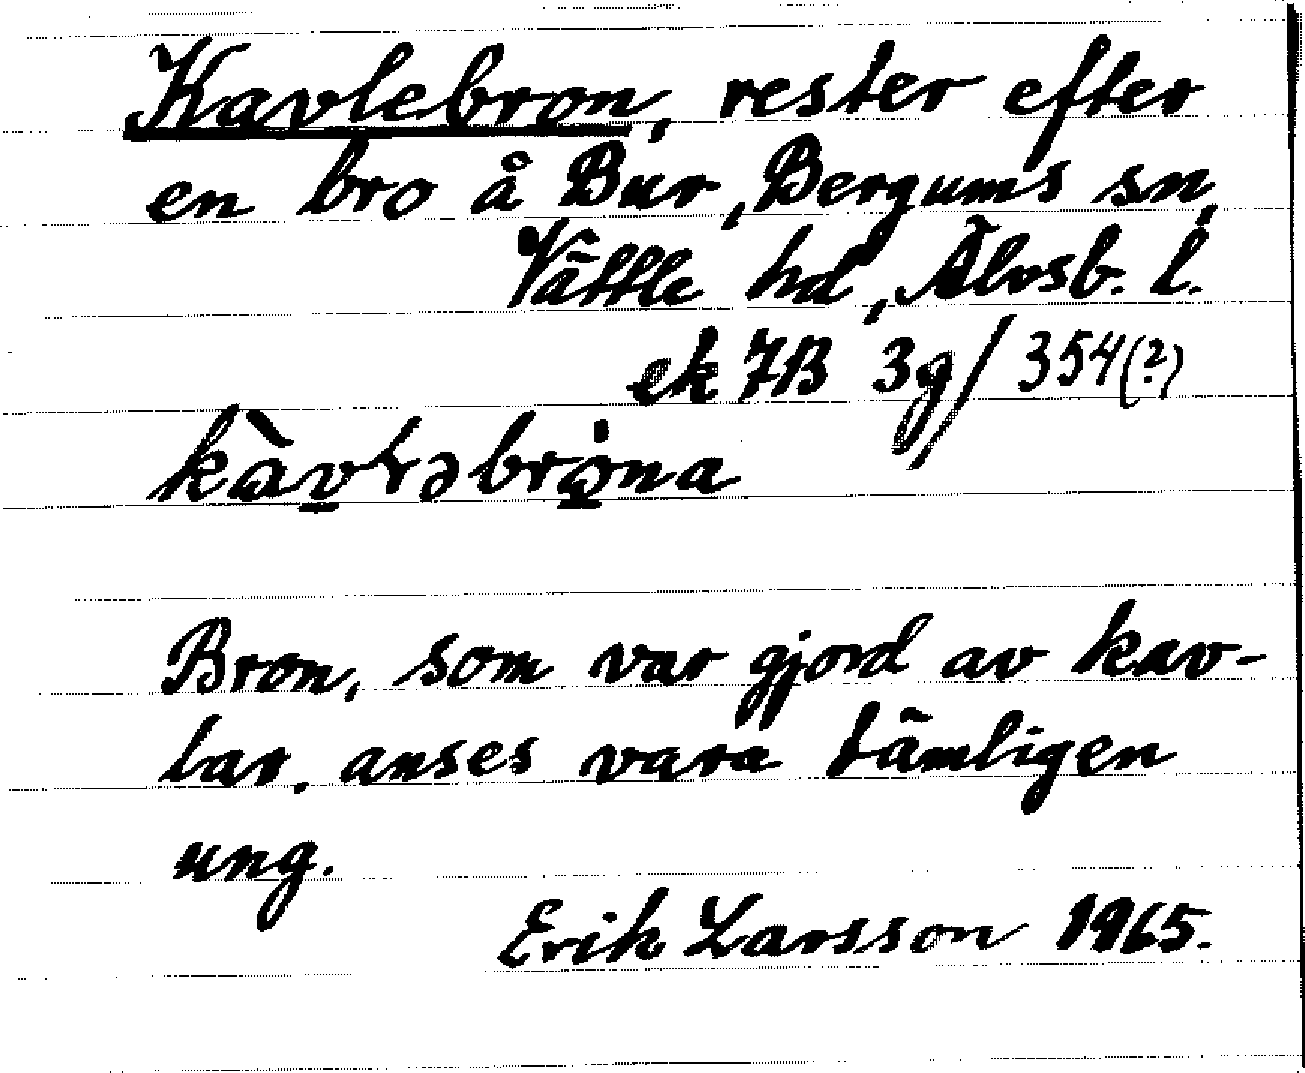 Kavlebron, rester efter
en bro å Bur, Bergums sn,
Vättle hd, Älvsb. l.
ek 7B 3g/354(?)
kàvləbrò̤na
Bron, som var gjord av kav-
lar, anses vara tämligen
ung.
Erik Larsson 1965.